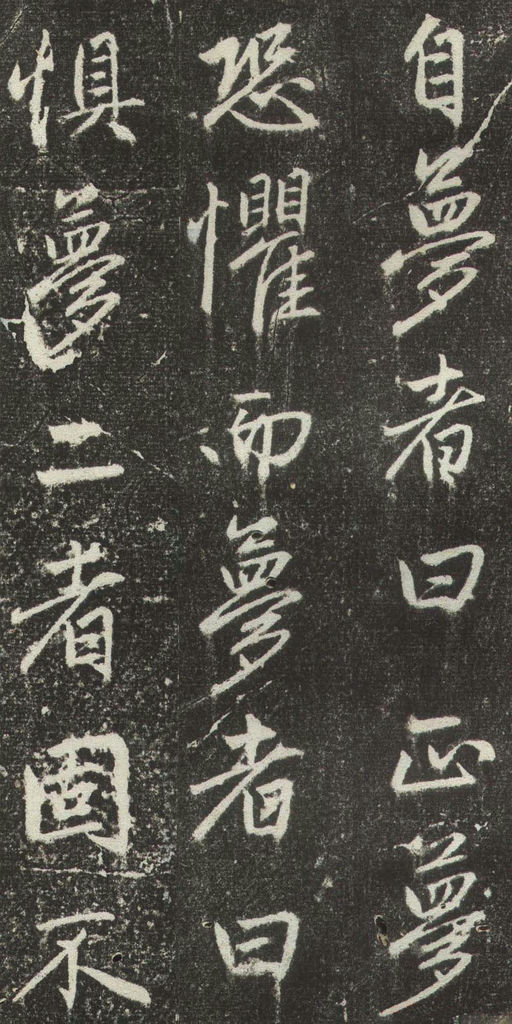 自夢者曰正夢
恐懼而夢者曰
懼夢二者固不